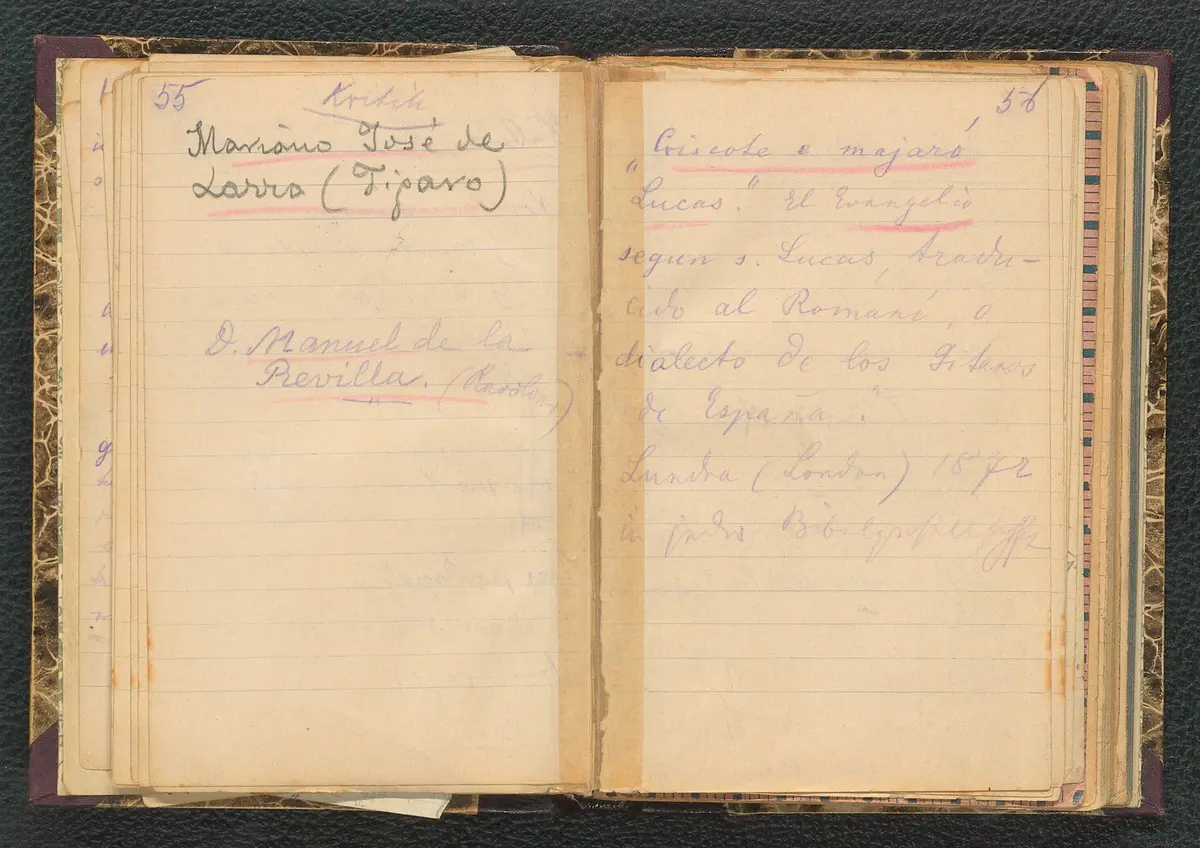 55
Kritik
Mariano José de
Larra (Figaro)
D. Manuel de la
Revilla.
56
Criscote e majaró
"Lucas." El Evangelio
segun s. Lucas, tradu-
cido al Romani, o
dialecto de los Gitanos
de España".
Lundra (London) 1872
in jeder